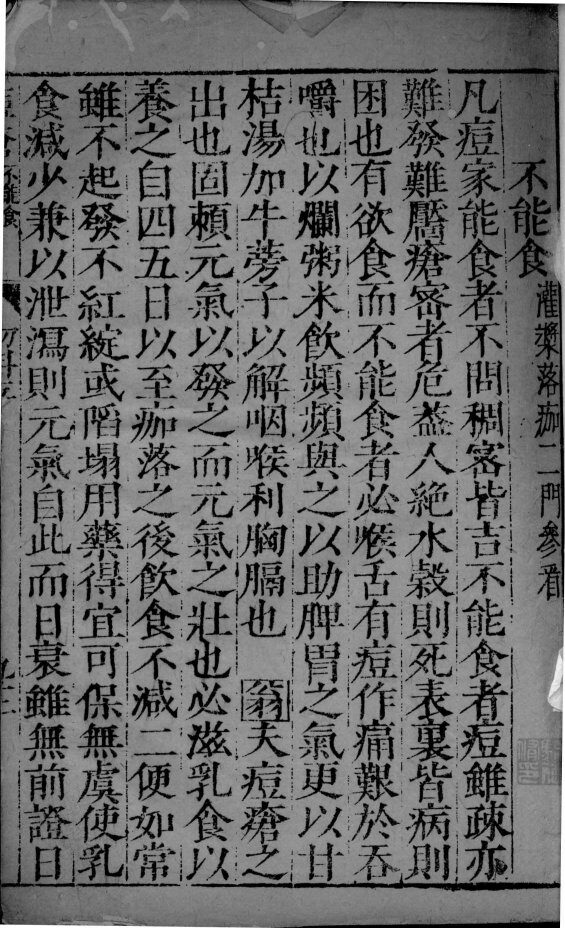 不能食 灌漿落痂二門參看
凡痘家能食者不問稠密皆吉不能食者痘雖疎亦
難發難靨瘡密者危蓋人絶水穀則死表裏皆病則
困也有欲食而不能食者必喉舌有痘作痛艱於吞
嚼也以爛粥米飲頻頻與之以助脾胃之氣更以甘
桔湯加牛蒡子以解咽喉利胸膈也 翁夫痘瘡之
出也固頼元氣以發之而元氣之壯也必滋乳食以
養之自四五日以至痂落之後飲食不減二便如常
雖不起發不紅綻或陷塌用藥得宜可保無虞使乳
食減少兼以泄瀉則元氣自此而日衰雖無前證日